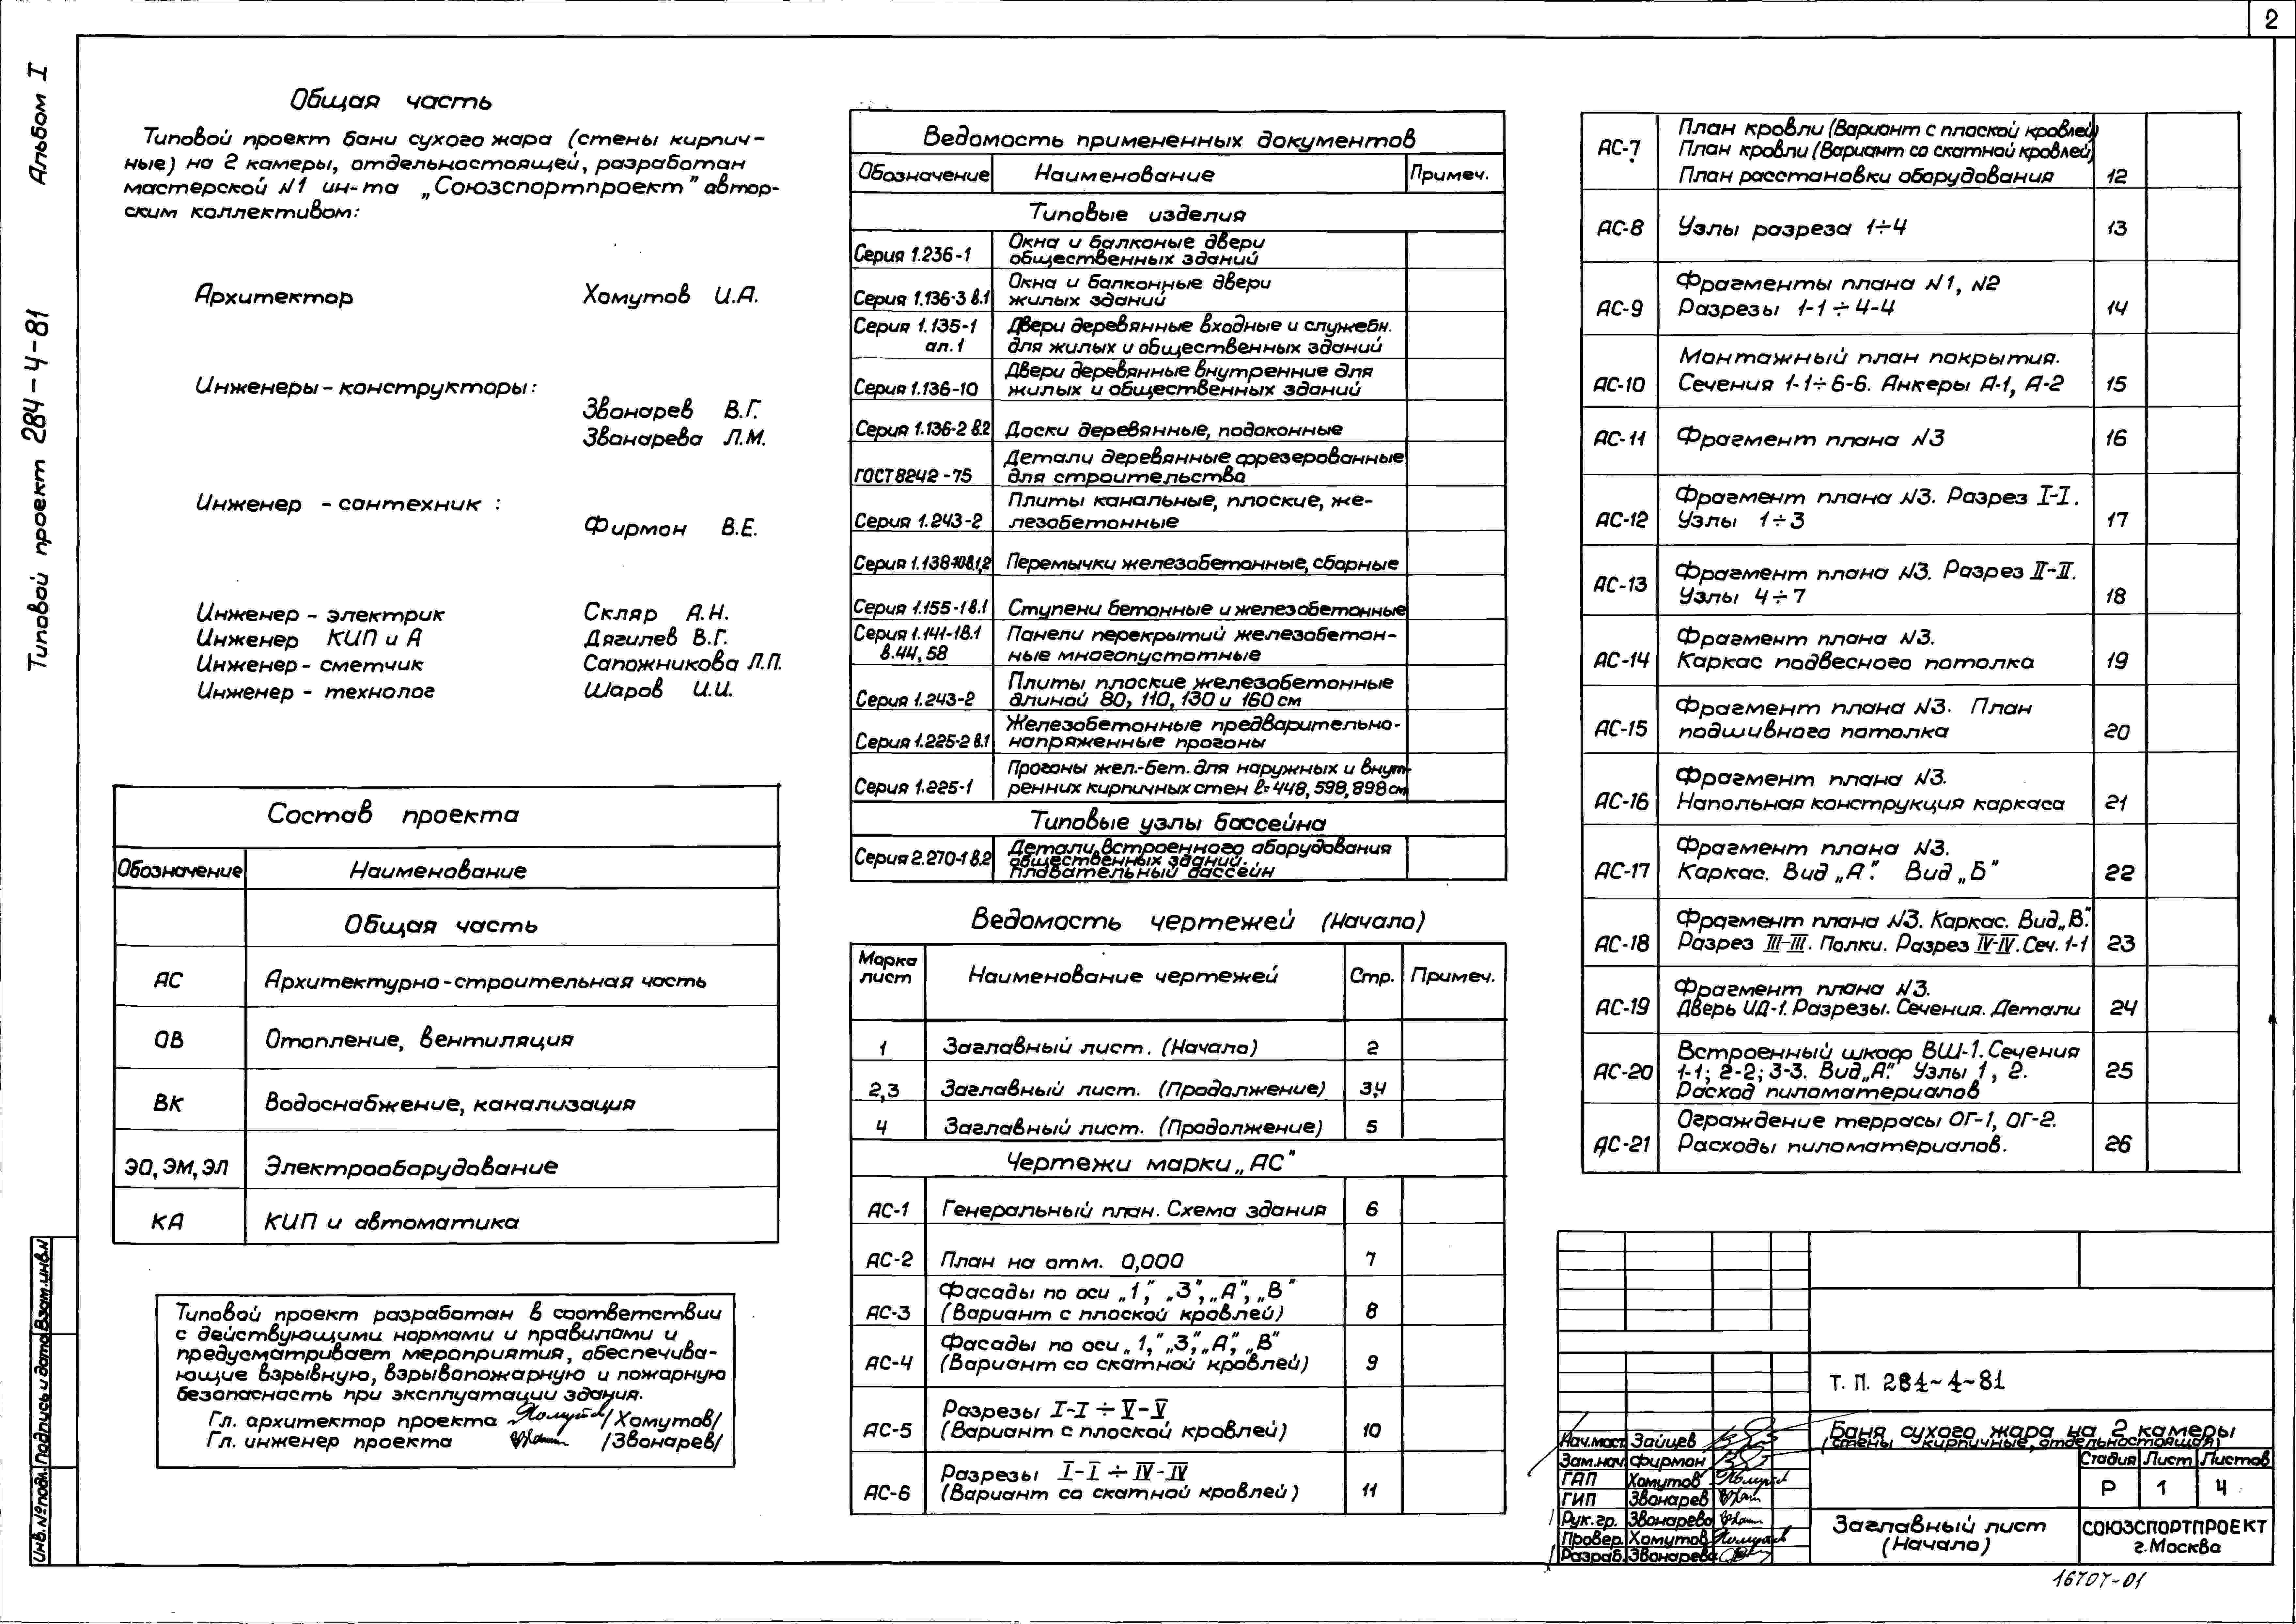 2
Альбом I
Типовой проект 284-4-81
Общая часть
Типовой проект бани сухого жара (стены кирпич-
ные) на 2 камеры, отдельностоящей, разработан
мастерской N1 ин-та „Союзспортпроект" автор-
ским коллективом:
Архитектор Хомутов И.А.
Инженеры-конструкторы:
Звонарев В.Г.
Звонарева Л.М.
Инженер - сантехник :
Фирман В.Е.
Инженер - электрик Скляр А.Н.
Инженер КИП и А Дягилев В.Г.
Инженер - сметчик Сапожникова Л.П.
Инженер - технолог Шаров И.И.
Состав проекта
Обозначение Наименование
Общая часть
АС Архитектурно-строительная часть
ОВ Отопление, вентиляция
ВК Водоснабжение, канализация
ЭО, ЭМ, ЭЛ Электрооборудование
КА КИП и автоматика
Типовой проект разработан в соответствии
с действующими нормами и правилами и
предусматривает мероприятия, обеспечива-
ющие взрывную, взрывопожарную и пожарную
безопасность при эксплуатации здания.
Гл. архитектор проекта /Хомутов/
Гл. инженер проекта /Звонарев/
Инв.№подл. Подпись и дата Взам.инв.N
Ведомость примененных документов
Обозначение Наименование Примеч.
Типовые изделия
Серия 1.236-1 Окна и балконые двери
общественных зданий
Серия 1.136-3 в.1 Окна и балконные двери
жилых зданий
Серия 1.135-1 Двери деревянные входные и служебн.
ал.1 для жилых и общественных зданий
Серия 1.136-10 Двери деревянные внутренние для
жилых и общественных зданий
Серия 1.136-2 в.2 Доски деревянные, подоконные
ГОСТ 8242-75 Детали деревянные фрезерованные
для строительства
Серия 1.243-2 Плиты канальные, плоские, же-
лезобетонные
Серия 1.138-10в.1,2 Перемычки железобетонные, сборные
Серия 1.155-1 в.1 Ступени бетонные и железобетонные
Серия 1.141-1в.1 Панели перекрытий железобетон-
в.44, 58 ные многопустотные
Серия 1.243-2 Плиты плоские железобетонные
длиной 80, 110, 130 и 160 см
Серия 1.225-2 в.1 Железобетонные предварительно-
напряженные прогоны
Серия 1.225-1 Прогоны жел.-бет. для наружных и внут-
ренних кирпичных стен ℓ=448, 598, 898см
Типовые узлы бассейна
Серия 2.270-1 в.2 Детали встроенного оборудования
общественных зданий.
Плавательный бассейн
Ведомость чертежей (Начало)
Марка лист Наименование чертежей Стр. Примеч.
1 Заглавный лист. (Начало) 2
2,3 Заглавный лист. (Продолжение) 3,4
4 Заглавный лист. (Продолжение) 5
Чертежи марки „АС"
АС-1 Генеральный план. Схема здания 6
АС-2 План на отм. 0,000 7
АС-3 Фасады по оси „1", „3", „А", „В"
(Вариант с плоской кровлей) 8
АС-4 Фасады по оси „1", „3", „А", „В"
(Вариант со скатной кровлей) 9
АС-5 Разрезы I-I ÷ V-V
(Вариант с плоской кровлей) 10
АС-6 Разрезы I-I ÷ IV-IV
(Вариант со скатной кровлей) 11
АС-7 План кровли (Вариант с плоской кровлей)
План кровли (Вариант со скатной кровлей)
План расстановки оборудования 12
АС-8 Узлы разреза 1÷4 13
АС-9 Фрагменты плана N1, N2
Разрезы 1-1 ÷ 4-4 14
АС-10 Монтажный план покрытия.
Сечения 1-1÷6-6. Анкеры А-1, А-2 15
АС-11 Фрагмент плана N3 16
АС-12 Фрагмент плана N3. Разрез I-I.
Узлы 1÷3 17
АС-13 Фрагмент плана N3. Разрез II-II.
Узлы 4÷7 18
АС-14 Фрагмент плана N3.
Каркас подвесного потолка 19
АС-15 Фрагмент плана N3. План
подшивного потолка 20
АС-16 Фрагмент плана N3.
Напольная конструкция каркаса 21
АС-17 Фрагмент плана N3.
Каркас. Вид „А". Вид „Б" 22
АС-18 Фрагмент плана N3. Каркас. Вид „В".
Разрез III-III. Полки. Разрез IV-IV. Сеч. 1-1 23
АС-19 Фрагмент плана N3.
Дверь ИД-1. Разрезы. Сечения. Детали 24
АС-20 Встроенный шкаф ВШ-1. Сечения
1-1; 2-2; 3-3. Вид „А". Узлы 1, 2.
Расход пиломатериалов 25
АС-21 Ограждение террасы ОГ-1, ОГ-2.
Расходы пиломатериалов. 26
Т. П. 284-4-81
Баня сухого жара на 2 камеры
(стены кирпичные, отдельностоящая)
Нач.маст. Зайцев
Зам.нач. Фирман
ГАП Хомутов
ГИП Звонарев
Рук.гр. Звонарева
Провер. Хомутов
Разраб. Звонарева
Стадия Лист Листов
Р 1 4
Заглавный лист
(Начало)
СОЮЗСПОРТПРОЕКТ
г.Москва
16707-01